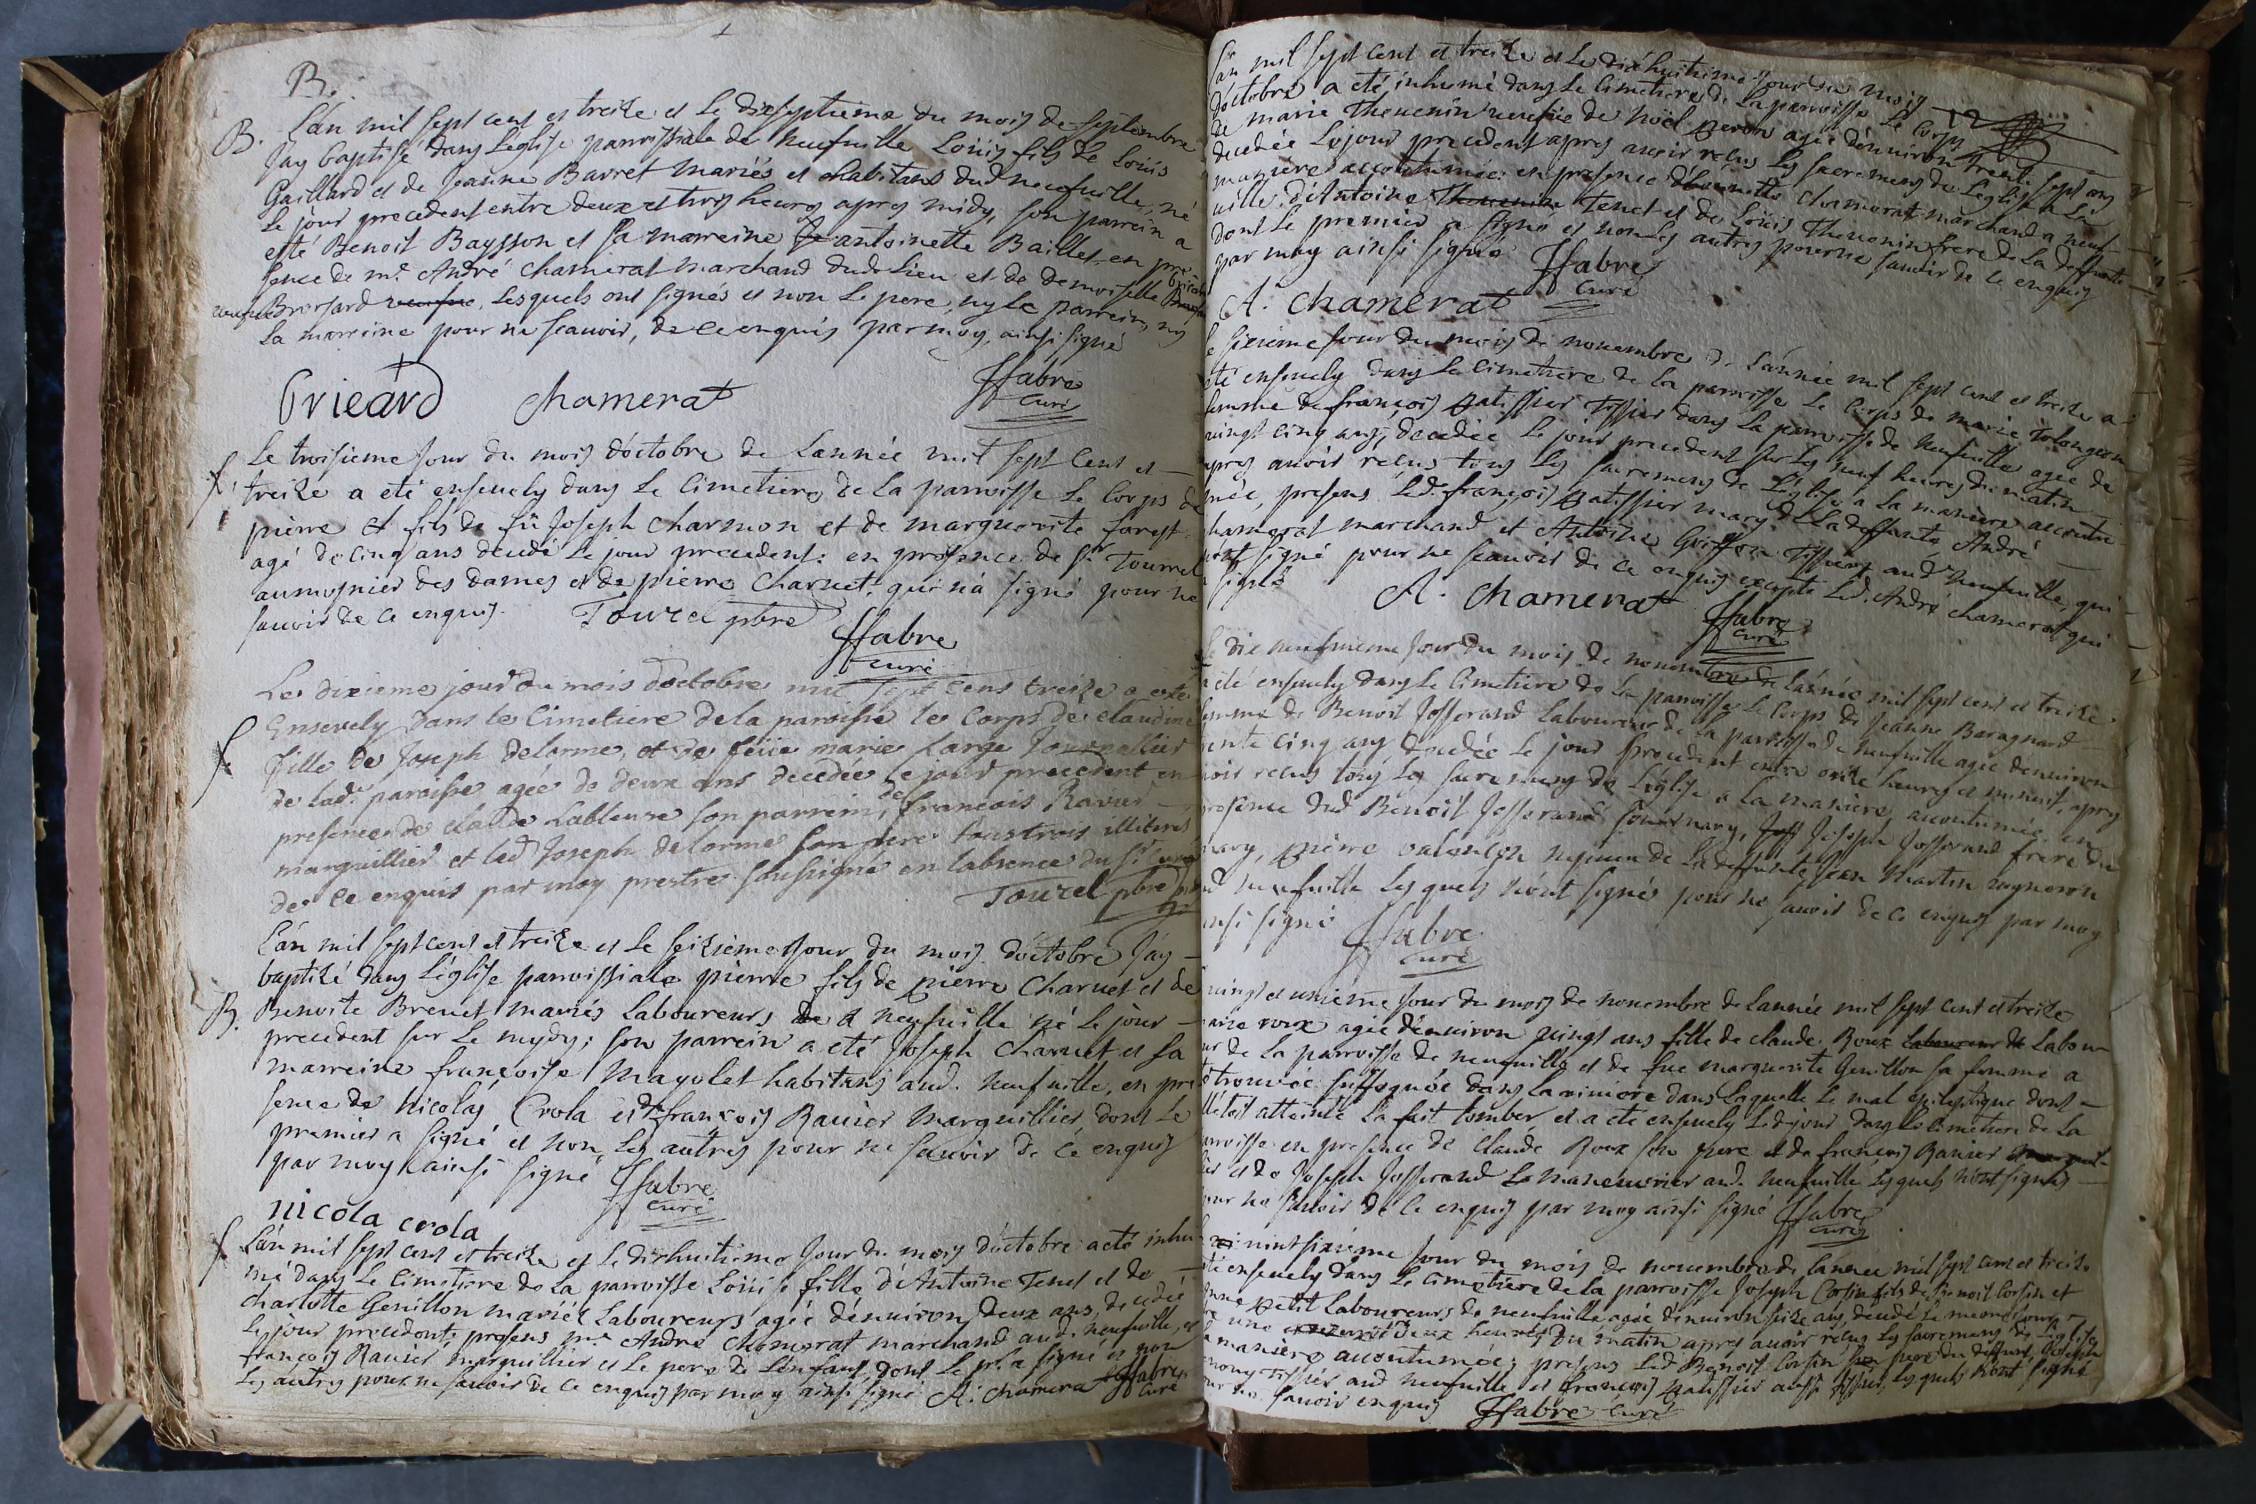 B.
B. L'an mil sept cent et treize et le dixseptieme du mois de septembre
J'ay baptisé dans L'église parroissiale de neufuille Loüis fils de Loüis
Gaillard et de Jeanne Barret mariés et habitans dud neufuille, né
Le jour precedent entre deux et trois heures apres midy, son parrein a
esté Benoit Baysson et sa marreine antoinette Baillet en pre
sence de mr. André Chamerat marchand dud. Lieu et de demoiselle
Brossard Lesquels ont signés et non Le pere, ny Le parrein, ny
La marreine pour ne scauoir, de ce enquis par moy, ainsi signé
Grieard chamerat ffabre
curé
f. Le troisieme jour du mois d'octobre de L'année mil sept cent et
treize a eté enseuely dans Le Cimetiere de La parroisse Le Corps de
pierre fils de fû Joseph Charmon et de marguerite forest
agé de cinq ans decedé Le jour precedent: en presence de Sr. Tourrel
aumosnier des dames et de pierre Charuet, qui n'a signé pour ne
sauoir de ce enquis. Tourel pbre ffabre
curé
f. Le dixieme jour du mois d'octobre mil sept cens treize a esté
Ensevely dans le Cimetiere de la paroisse le Corps de claudine
fille de Joseph delorme, et de feüe marie Large Journallier
de lad. paroisse agée de deux ans decedée le jour precedent en
presence de claude Lableure son parrein, de francois Ravier
marguillier et led Joseph delorme son pere tous trois illitérés
de ce enquis par moy prestre soussigné en l'absence du sr. curé
Tourel pbre
B. L'an mil sept cent et treize et le seizième jour du mois d'octobre J'ay
baptizé dans L'église parroissiale pierre fils de pierre Charuet et de
Benoite Breuet mariés Laboureurs a neufuille né Le jour
precedent sur Le mydy; son parrein a eté Joseph Charuet et sa
marreine françoise Mayolet habitans aud. neufuille, en pre
sence de Nicolas Crola et de françois Rauier marguillier, dont Le
premier a signé et non Les autres pour ne sauoir de ce enquis
par moy ainsi signé ffabre
curé
nicola crola
f. L'an mil sept cent et treize et Le dixhuitieme Jour du mois d'octobre a eté inhu
mé dans Le Cimetiere de La parroisse Loüise fille d'Antoine Tenet et de
charlotte Genillon mariés Laboureurs agée d'enuiron deux ans, decedée
Le jour precedent; presens mr. André Chamerat marchand aud. neufuille, et
francois Rauier marguillier et Le pere de L'enfant, dont Le pr. a signé et non
Les autres pour ne sauoir de ce enquis par moy ainsi signé A. chamerat ffabre
curé
L'an mil sept cent et treize et Le dixhuitieme Jour du mois
d'octobre a eté inhumé dans Le Cimetiere de La parroisse Le Corps
de marie Theuenin veufue de Noël Beron agée d'enuiron trente sept ans
decedée Le jour precedent apres auoir recus Les sacremens de L'eglise a La
maniere accoutumée: en presence Chamerat marchand a neuf
uille d'Antoine Tenet et de Loüis Theuenin frere de La deffunte
dont Le premier a signé et non Les autres pour ne sauoir de ce enquis
par moy ainsi signé ffabre
curé
A. chamerat
sixieme Jour du mois de nouembre de L'année mil sept cent et treize a
eté enseuely dans Le Cimetiere de La parroisse Le Corps de marie Tolongeon
femme de françois patissier Tissier dans La parroisse de Neufuille agée de
vingt cinq ans, decedée Le jour precedent sur Les neuf heures du matin
apres auoir recus tous Les sacremens de L'église a La maniere accoutu
mée, presens Led. françois patissier mary de La deffunte André
chamerat marchand et Antoine Tissier aud. Neufuille, qui
n'ont signé pour ne scauoir de ce enquis excepté Led. André chamerat qui
a signé A. chamerat ffabre
curé
Le dix neufuieme jour du mois de nouembre de L'année mil sept cent et treize
a eté enseuely dans Le Cimetiere de La parroisse Le Corps de Jeanne Baragnard
femme de Benoit Josserand Laboureur de La parroisse de neufuille agée d'enuiron
trente cinq ans decedée Le jour precedent entre onze heures et minuit, apres
auoir recus tous Les sacremens de L'église a La maniere accoutumée, en
presence dud Benoit Josserand son mary, Joseph Josserand frere du
mary, pierre Valençon de La deffunte Jean Martin vigneron
aud neufuille Lesquels n'ont signés pour ne sauoir de ce enquis par moy
ainsi signé ffabre
curé
vingt et unieme Jour du mois de nouembre de L'année mil sept cent et treize
roux agée d'enuiron vingt ans fille de claude Roux Labou
reur de La parroisse de neufuille et de feue marguerite Genillon sa femme a
eté trouuée suffoquée dans La riuiere dans Laquelle Le mal épileptique dont
elle étoit atteinte La fait tomber et a eté enseuely Led jour dans Le Cimetiere de La
parroisse en presence de Claude Roux son pere et de françois Rauier
et de Joseph Josserand Le maneuurier aud. neufuille Lesquels n'ont signés
pour ne sauoir de ce enquis par moy ainsi signé ffabre
curé
vintsixieme Jour du mois de nouembre de L'année mil sept cent et treize
a eté enseuely dans Le Cimetiere de La parroisse Joseph Corsin fils de Benoit Corsin et
petit Laboureurs de neufuille agée d'enuiron seize ans, decedé Le meme Jour
une deux heures du matin apres auoir recus Les sacremens de L'église
a La maniere accoutumée; presens Led. Benoit Corsin pere du deffunt, Joseph
Tissier aud neufuille et françois patissier aussi Tissier, Lesquels n'ont signé
pour ne sauoir enquis ffabre curé